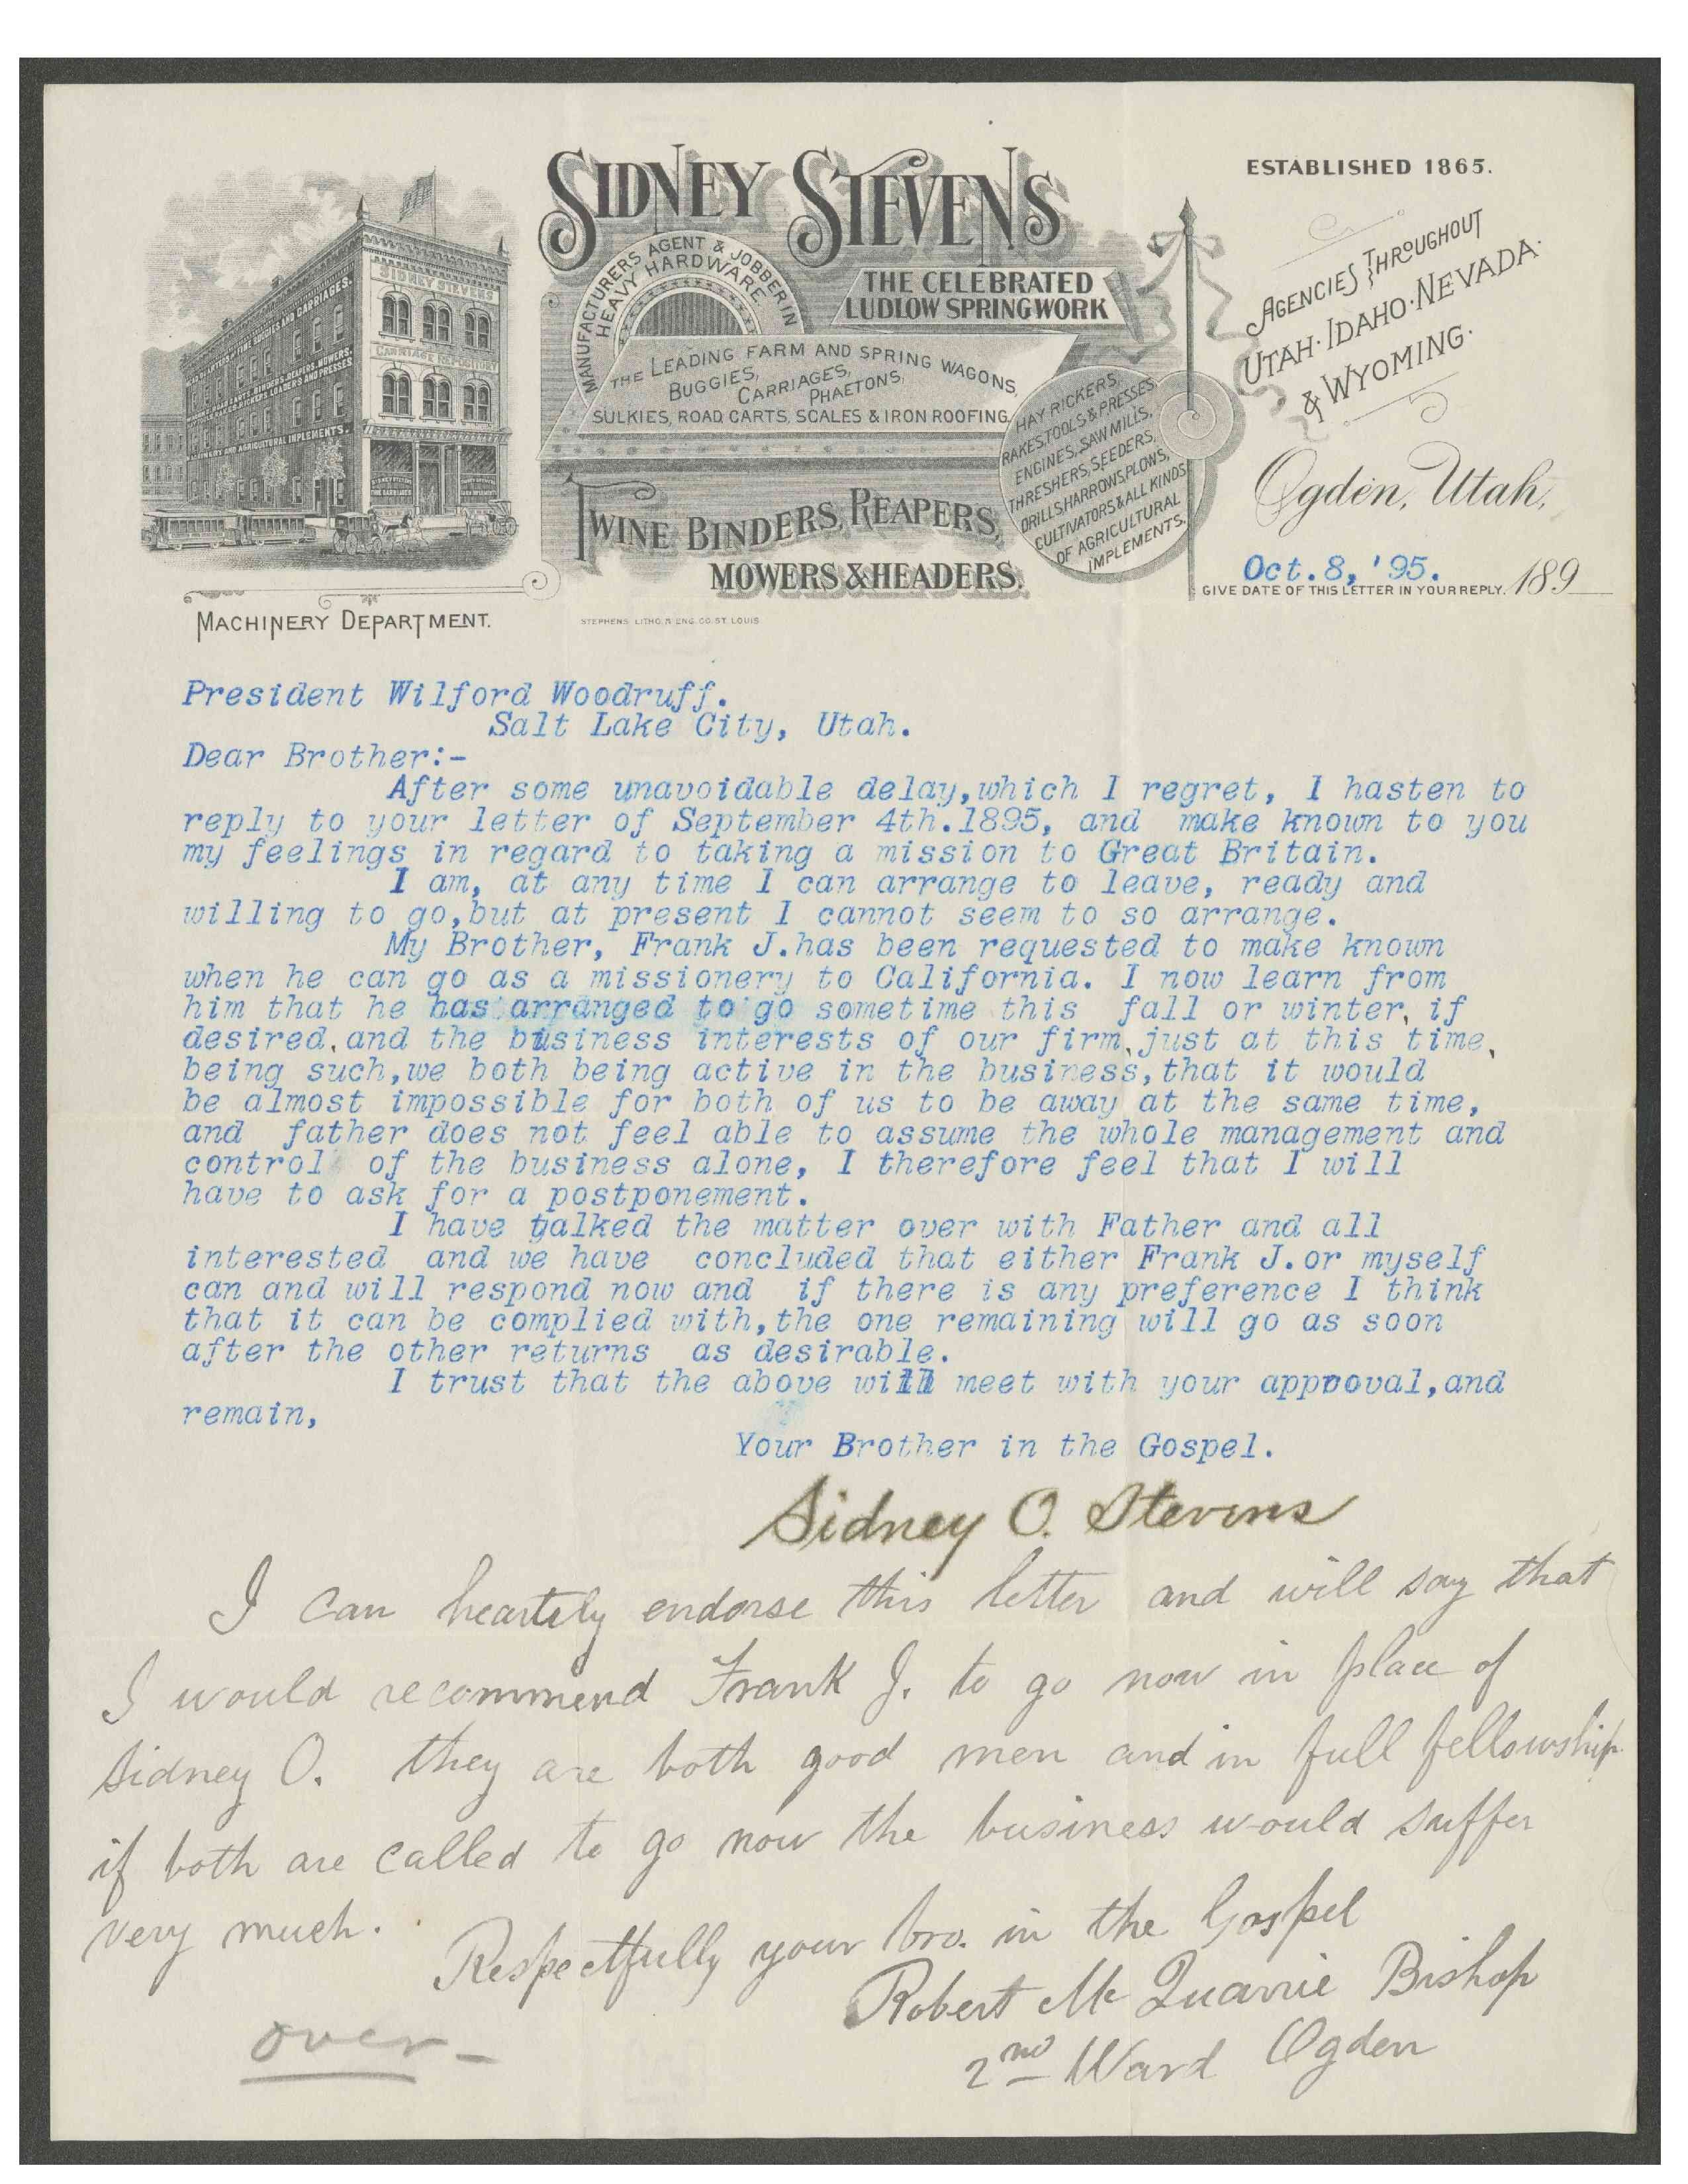 SIDNEY STEVENS
ESTABLISHED 1865.
MANUFACTURERS AGENT & JOBBER IN
HEAVY HARDWARE.
THE CELEBRATED
LUDLOW SPRING WORK
THE LEADING FARM AND SPRING WAGONS,
BUGGIES, CARRIAGES, PHAETONS,
SULKIES, ROAD CARTS, SCALES & IRON ROOFING,
HAY RICKERS,
RAKES, TOOLS & PRESSES,
ENGINES, SAW MILLS,
THRESHERS, SEEDERS,
DRILLS, HARROWS, PLOWS,
CULTIVATORS & ALL KINDS
OF AGRICULTURAL
IMPLEMENTS.
TWINE BINDERS, REAPERS,
MOWERS & HEADERS.
AGENCIES THROUGHOUT
UTAH · IDAHO · NEVADA ·
& WYOMING ·
SIDNEY STEVENS
CARRIAGE REPOSITORY
Ogden, Utah,
Oct.8,'95. 189
GIVE DATE OF THIS LETTER IN YOUR REPLY.
MACHINERY DEPARTMENT.
STEPHENS LITHO. & ENG. CO. ST. LOUIS
President Wilford Woodruff.
Salt Lake City, Utah.
Dear Brother:-
After some unavoidable delay,which I regret, I hasten to
reply to your letter of September 4th.1895, and make known to you
my feelings in regard to taking a mission to Great Britain.
I am, at any time I can arrange to leave, ready and
willing to go,but at present I cannot seem to so arrange.
My Brother, Frank J.has been requested to make known
when he can go as a missionery to California. I now learn from
him that he has arranged to go sometime this fall or winter, if
desired,and the business interests of our firm,just at this time,
being such,we both being active in the business,that it would
be almost impossible for both of us to be away at the same time,
and father does not feel able to assume the whole management and
control of the business alone, I therefore feel that I will
have to ask for a postponement.
I have talked the matter over with Father and all
interested and we have concluded that either Frank J.or myself
can and will respond now and if there is any preference I think
that it can be complied with,the one remaining will go as soon
after the other returns as desirable.
I trust that the above will meet with your approval,and
remain,
Your Brother in the Gospel.
Sidney O. Stevens
I can heartely endorse this letter and will say that
I would recommend Frank J. to go now in place of
Sidney O. they are both good men and in full fellowship
if both are called to go now the business would suffer
very much.
Respectfully your bro. in the Gospel
Robert McQuarrie Bishop
2nd Ward Ogden
over-